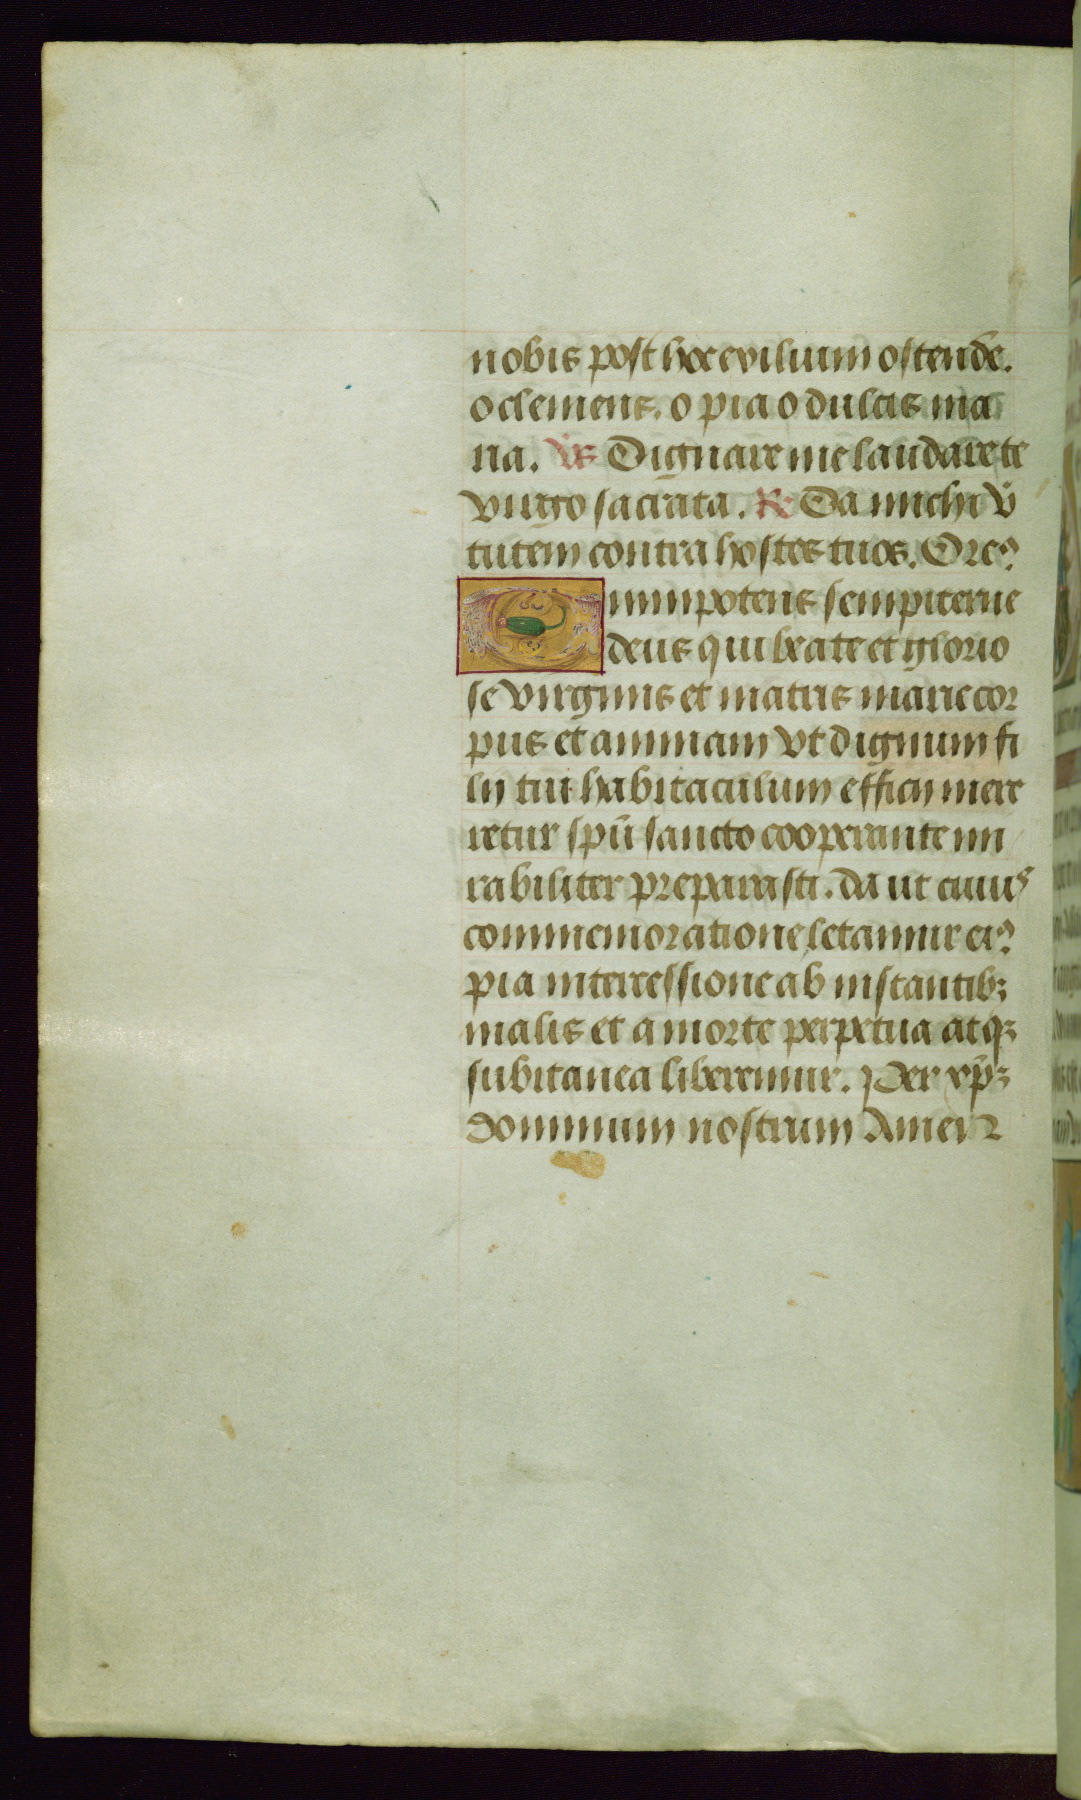 nobis post hoc exilium ostende.
o clemens. o pia o dulcis ma
ria. Vs Dignare me laudare te
virgo sacrata. R Da michi v̄
tutem contra hostes tuos. Orem9
Omnipotens sempiterne
deus qui beate et glorio
se virginis et matris marie cor
pus et animam vt dignum fi
lij tui habitaculum effici mere
retur spū sancto cooperante mi
rabiliter preparasti. da ut cuius
commemoratione letamur ei9
pia intercessione ab instantibꝫ
malis et a morte perpetua atqꝫ
subitanea liberemur. Per xp̄ꝫ
dominum nostrum Amen